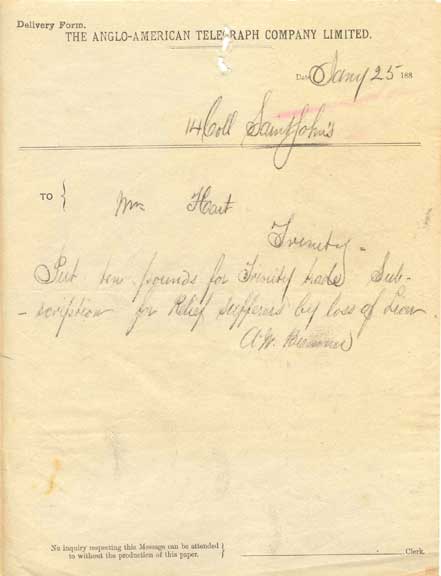 Delivery Form.
THE ANGLO-AMERICAN TELEGRAPH COMPANY LIMITED.
Date Jany 25 188
14 Coll Saint John's
TO
Hart
Trinity
Put ten pounds for Trinity trade Sub-
-scription for Relief sufferers by loss of Lion.
A.W.
No inquiry respecting this Message can be attended
to without the production of this paper.
Clerk.